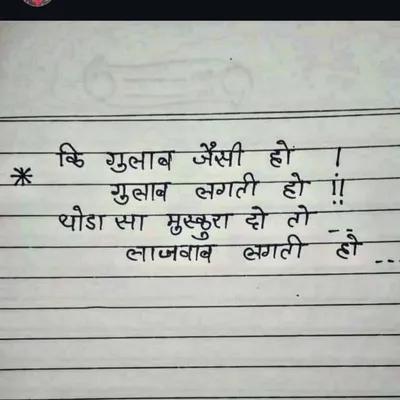 * कि गुलाब जैसी हो !
गुलाब लगती हो !!
थोडा सा मुस्कुरा दो तो ---
लाजवाब लगती हो ...